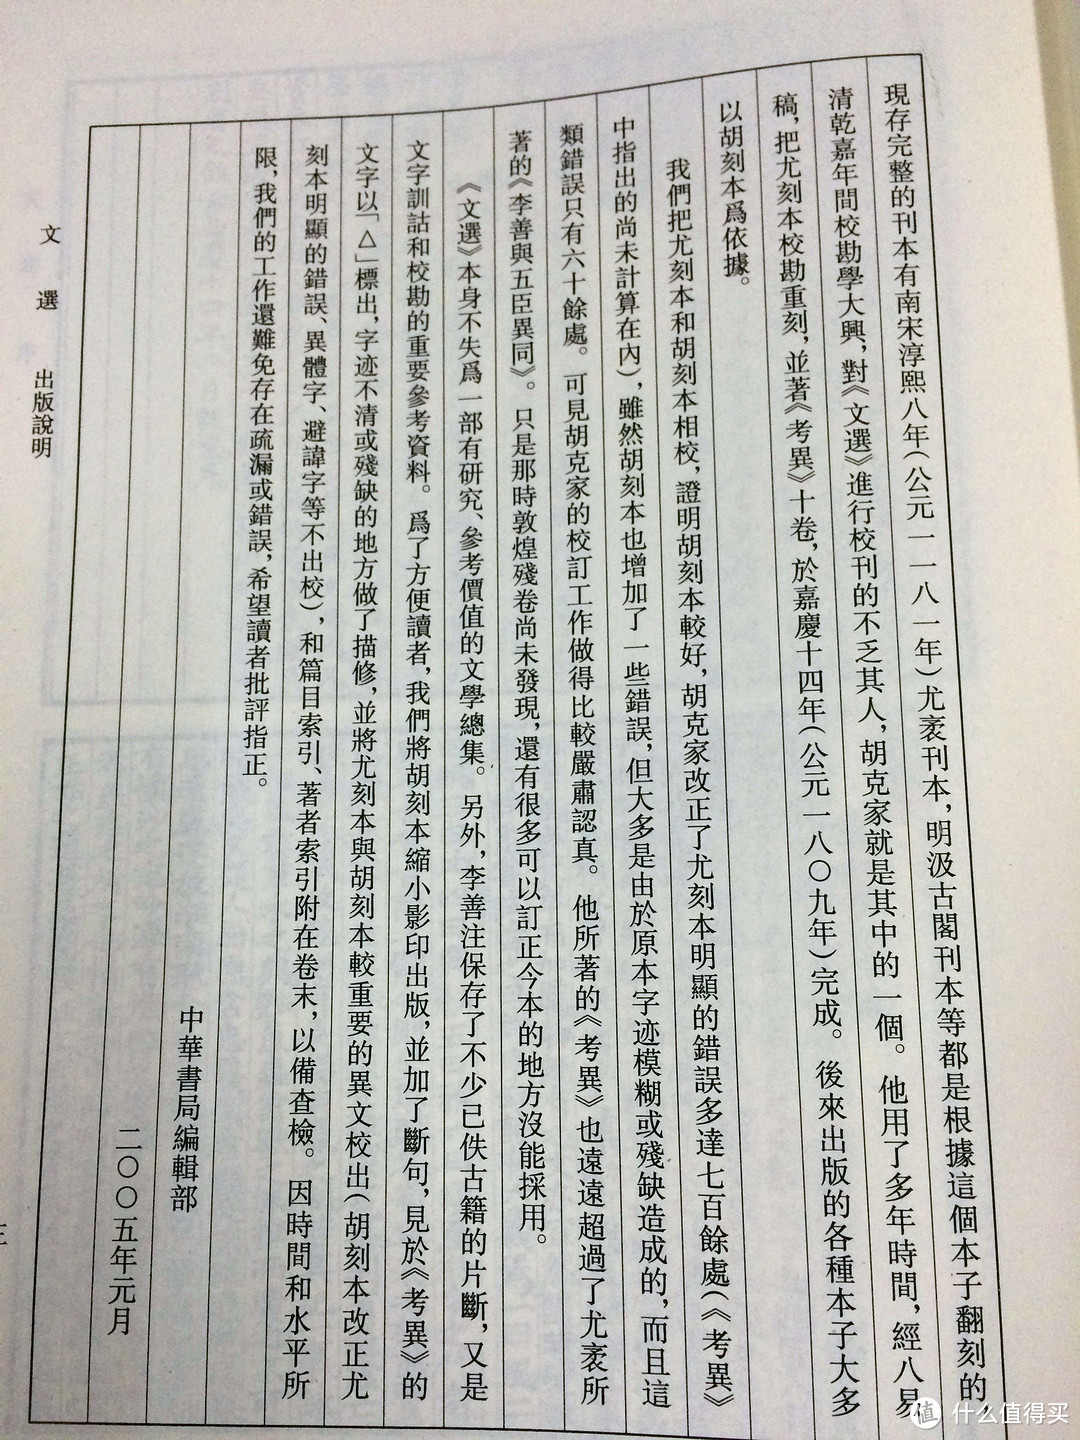 現存完整的刊本有南宋淳熙八年(公元一一八一年)尤袤刊本,明汲古閣刊本等都是根據這個本子翻刻的,
清乾嘉年間校勘學大興,對《文選》進行校刊的不乏其人,胡克家就是其中的一個。他用了多年時間,經八易
稿,把尤刻本校勘重刻,並著《考異》十卷,於嘉慶十四年(公元一八〇九年)完成。後來出版的各種本子大多
以胡刻本爲依據。
我們把尤刻本和胡刻本相校,證明胡刻本較好,胡克家改正了尤刻本明顯的錯誤多達七百餘處(《考異》
中指出的尚未計算在內),雖然胡刻本也增加了一些錯誤,但大多是由於原本字迹模糊或殘缺造成的,而且這
類錯誤只有六十餘處。可見胡克家的校訂工作做得比較嚴肅認真。他所著的《考異》也遠遠超過了尤袤所
著的《李善與五臣異同》。只是那時敦煌殘卷尚未發現,還有很多可以訂正今本的地方沒能採用。
《文選》本身不失爲一部有研究、參考價值的文學總集。另外,李善注保存了不少已佚古籍的片斷,又是
文字訓詁和校勘的重要參考資料。爲了方便讀者,我們將胡刻本縮小影印出版,並加了斷句,見於《考異》的
文字以「△」標出,字迹不清或殘缺的地方做了描修,並將尤刻本與胡刻本較重要的異文校出(胡刻本改正尤
刻本明顯的錯誤、異體字、避諱字等不出校),和篇目索引、著者索引附在卷末,以備查檢。因時間和水平所
限,我們的工作還難免存在疏漏或錯誤,希望讀者批評指正。
中華書局編輯部
二〇〇五年元月
文選 出版說明
三
值 什么值得买